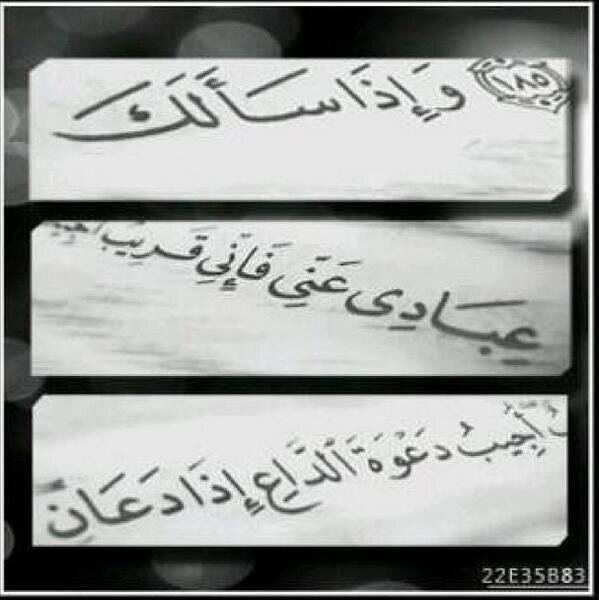 ١٨٥ وَإِذَا سَأَلَكَ
عِبَادِى عَنِّى فَإِنِّى قَرِيبٌ
أُجِيبُ دَعْوَةَ ٱلدَّاعِ إِذَا دَعَانِ
22E35B83